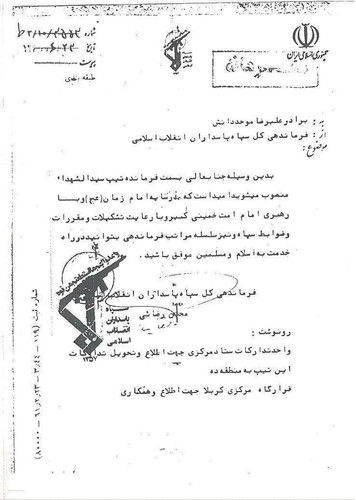 جمهوری اسلامی ایران
شماره
تاریخ
پیوست
طبقه بندی
به : برادر علیرضا موحد دانش
از : فرماندهی کل سپاه پاسداران انقلاب اسلامی
موضوع :
بدین وسیله جنابعالی بسمت فرمانده تیپ سیدالشهداء
منصوب میشوید امید است که با رضایت امام زمان (عج) و با
رهبری امام امت خمینی کبیر و با رعایت تشکیلات و مقررات
و ضوابط سپاه و نیز سلسله مراتب فرماندهی بتوانید در راه
خدمت به اسلام و مسلمین موفق باشید .
فرماندهی کل سپاه پاسداران انقلاب
محسن رضائی
سپاه
پاسداران
انقلاب
اسلامی
۱۳۵۷
رونوشت :
واحد تدارکات ستاد مرکزی جهت اطلاع و تحویل تدارکات
این تیپ به منطقه ده
قرارگاه مرکزی کربلا جهت اطلاع و همکاری
شماره ثبت